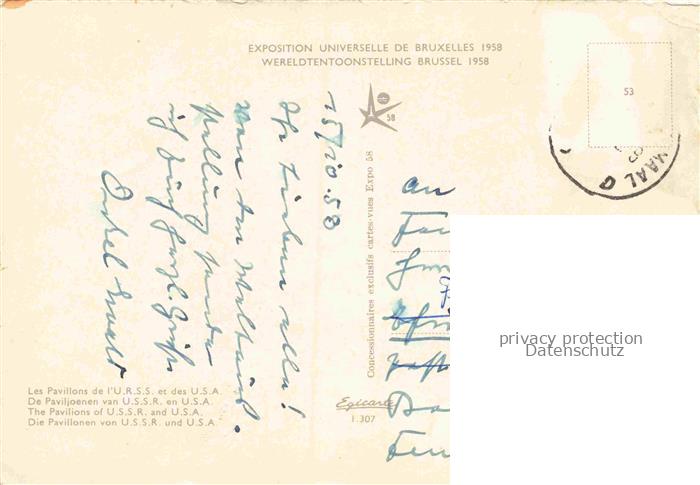 EXPOSITION UNIVERSELLE DE BRUXELLES 1958
WERELDTENTOONSTELLING BRUSSEL 1958
58
53
MAAL
15/10.58
Ihr Lieben alle!
von der Weltaus
stellung sende
ich Euch herzl. Grüße
Onkel Ewald
Concessionnaires exclusifs cartes-vues Expo 58
An
Fa
privacy protection
Datenschutz
Les Pavillons de l'U.R.S.S. et des U.S.A.
De Paviljoenen van U.S.S.R. en U.S.A.
The Pavilions of U.S.S.R. and U.S.A.
Die Pavillonen von U.S.S.R. und U.S.A.
Egicarte
1.307